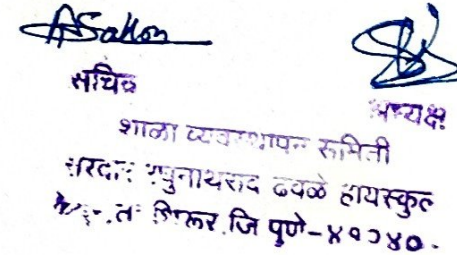 सचिव
अध्यक्ष
शाळा व्यवस्थापन समिती
सरदार रघुनाथराव ढवळे हायस्कुल
ता शिरूर. जि पुणे-४१२